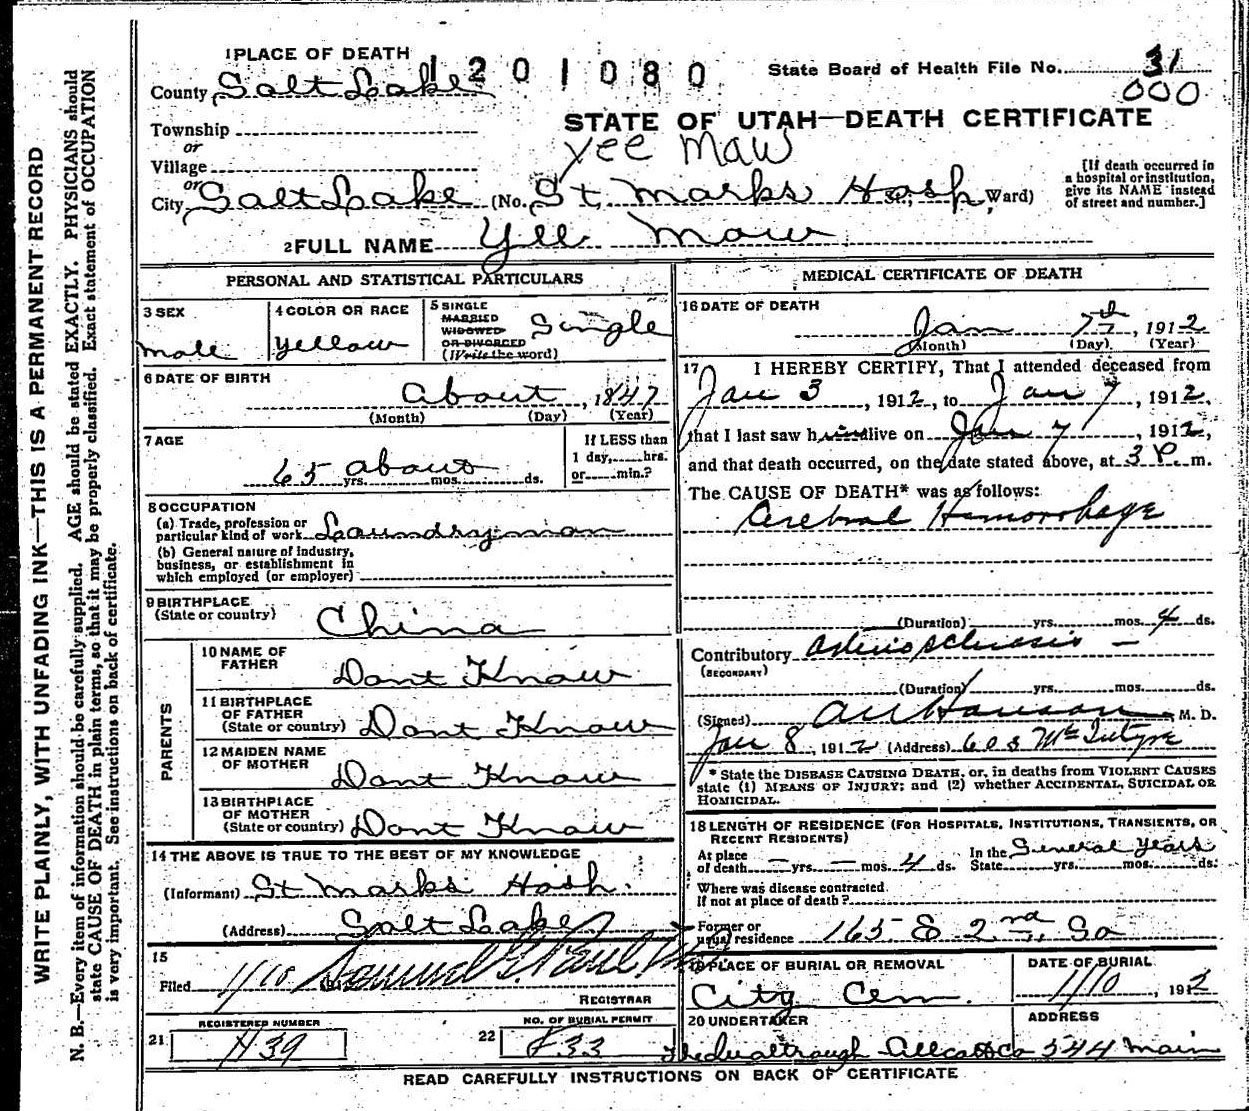 1 PLACE OF DEATH
1201080
State Board of Health File No. 31
000
County Salt Lake
STATE OF UTAH—DEATH CERTIFICATE
Township
or
Yee Maw
Village
or
City Salt Lake (No. St. Marks Hosp. St.; Ward)
[If death occurred in
a hospital or institution,
give its NAME instead
of street and number.]
2 FULL NAME Yee Maw
PERSONAL AND STATISTICAL PARTICULARS
3 SEX
male
4 COLOR OR RACE
yellow
5 SINGLE
MARRIED
WIDOWED
OR DIVORCED
(Write the word)
Single
6 DATE OF BIRTH
About, 1847
(Month) (Day) (Year)
7 AGE
65 yrs. about mos. ds.
If LESS than
1 day, hrs.
or min.?
8 OCCUPATION
(a) Trade, profession or
particular kind of work Laundryman
(b) General nature of industry,
business, or establishment in
which employed (or employer)
9 BIRTHPLACE
(State or country) China
PARENTS
10 NAME OF
FATHER Dont Know
11 BIRTHPLACE
OF FATHER
(State or country) Dont Know
12 MAIDEN NAME
OF MOTHER Dont Know
13 BIRTHPLACE
OF MOTHER
(State or country) Dont Know
14 THE ABOVE IS TRUE TO THE BEST OF MY KNOWLEDGE
(Informant) St Marks Hosp.
(Address) Salt Lake
15
Filed 1/10 Samuel G Paul
REGISTRAR
21 REGISTERED NUMBER
H39
22 NO. OF BURIAL PERMIT
F33
MEDICAL CERTIFICATE OF DEATH
16 DATE OF DEATH
Jan 7th, 1912
(Month) (Day) (Year)
17 I HEREBY CERTIFY, That I attended deceased from
Jan 3, 1912, to Jan 7, 1912,
that I last saw him alive on Jan 7, 1912,
and that death occurred, on the date stated above, at 3 P. m.
The CAUSE OF DEATH* was as follows:
Cerebral Hemorrhage
(Duration) yrs. mos. 4 ds.
Contributory Arteriosclerosis
(SECONDARY)
(Duration) yrs. mos. ds.
(Signed) M. D.
Jan 8, 1912 (Address) 603 McIntyre
* State the DISEASE CAUSING DEATH, or, in deaths from VIOLENT CAUSES
state (1) MEANS OF INJURY; and (2) whether ACCIDENTAL, SUICIDAL OR
HOMICIDAL.
18 LENGTH OF RESIDENCE (FOR HOSPITALS, INSTITUTIONS, TRANSIENTS, OR
RECENT RESIDENTS)
At place
of death — yrs. — mos. 4 ds.
In the
State Several Years yrs. mos. ds.
Where was disease contracted
if not at place of death?
Former or
usual residence 165 E 2nd So
19 PLACE OF BURIAL OR REMOVAL
City Cem.
DATE OF BURIAL
1/10, 1912
20 UNDERTAKER
ADDRESS
544 Main
READ CAREFULLY INSTRUCTIONS ON BACK OF CERTIFICATE
WRITE PLAINLY, WITH UNFADING INK—THIS IS A PERMANENT RECORD
N. B.—Every item of information should be carefully supplied. AGE should be stated EXACTLY. PHYSICIANS should
state CAUSE OF DEATH in plain terms, so that it may be properly classified. Exact statement of OCCUPATION
is very important. See instructions on back of certificate.